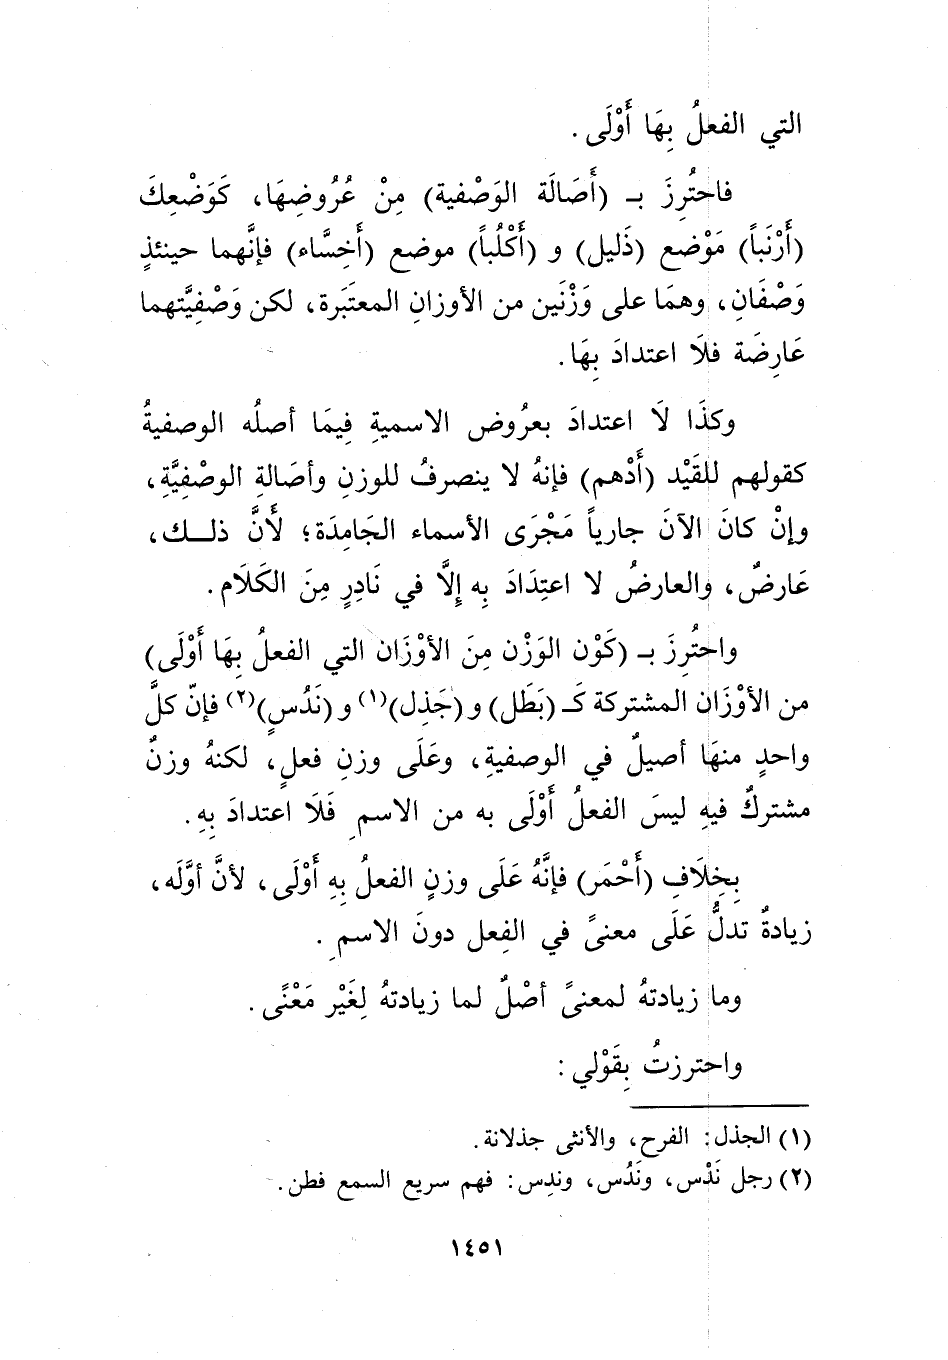 التي الفعلُ بِهَا أَوْلَى .
فاحتُرِزَ بـ (أَصَالَة الوَصْفية) مِنْ عُرُوضِهَا، كَوَضْعِكَ
(أَرْنَباً) مَوْضع (ذَليل) و (أَكْلُباً) موضع (أَخِسَّاء) فإنَّهما حينئذٍ
وَصْفَانِ، وهمَا على وَزْنَين من الأوزانِ المعتَبَرة، لكن وَصْفِيَّتهما
عَارِضَة فلَا اعتدادَ بِهَا .
وكذَا لَا اعتدادَ بعرُوض الاسميةِ فِيمَا أصلُه الوصفيةُ
كقولهم للقَيْد (أَدْهم) فإنهُ لا ينصرفُ للوزنِ وأصَالةِ الوصْفِيَّةِ،
وإنْ كانَ الآنَ جارياً مَجْرَى الأسماء الجَامِدَة؛ لأَنَّ ذلــك،
عَارضٌ، والعارضُ لا اعتِدَادَ بِه إلَّا في نَادِرٍ مِنَ الكَلَام .
واحتُرِزَ بـ (كَوْن الوَزْن مِنَ الأوْزَان التي الفعلُ بِهَا أَوْلَى)
من الأوْزَان المشتركة كَـ (بَطَل) و (جَذِل)(١) و (نَدُسٍ)(٢) فإنّ كلَّ
واحدٍ منهَا أصيلٌ في الوصفيةِ، وعَلَى وزنِ فعلٍ، لكنهُ وزنٌ
مشتركٌ فيهِ ليسَ الفعلُ أَوْلَى به من الاسمِ فَلَا اعتدادَ بِهِ .
بِخِلَافِ (أَحْمَر) فإنَّهُ عَلَى وزنٍ الفعلُ بِهِ أَوْلَى، لأنَّ أوَّلَه،
زيادةٌ تدلُّ عَلَى معنىً في الفِعل دونَ الاسمِ .
وما زيادتهُ لمعنىً أصْلٌ لما زيادتهُ لِغَيْر مَعْنًى .
واحترزتُ بِقَوْلي :
(١) الجذل: الفرح، والأنثى جذلانة .
(٢) رجل نَدْس، ونَدُس، وندِس: فهم سريع السمع فطن .
١٤٥١